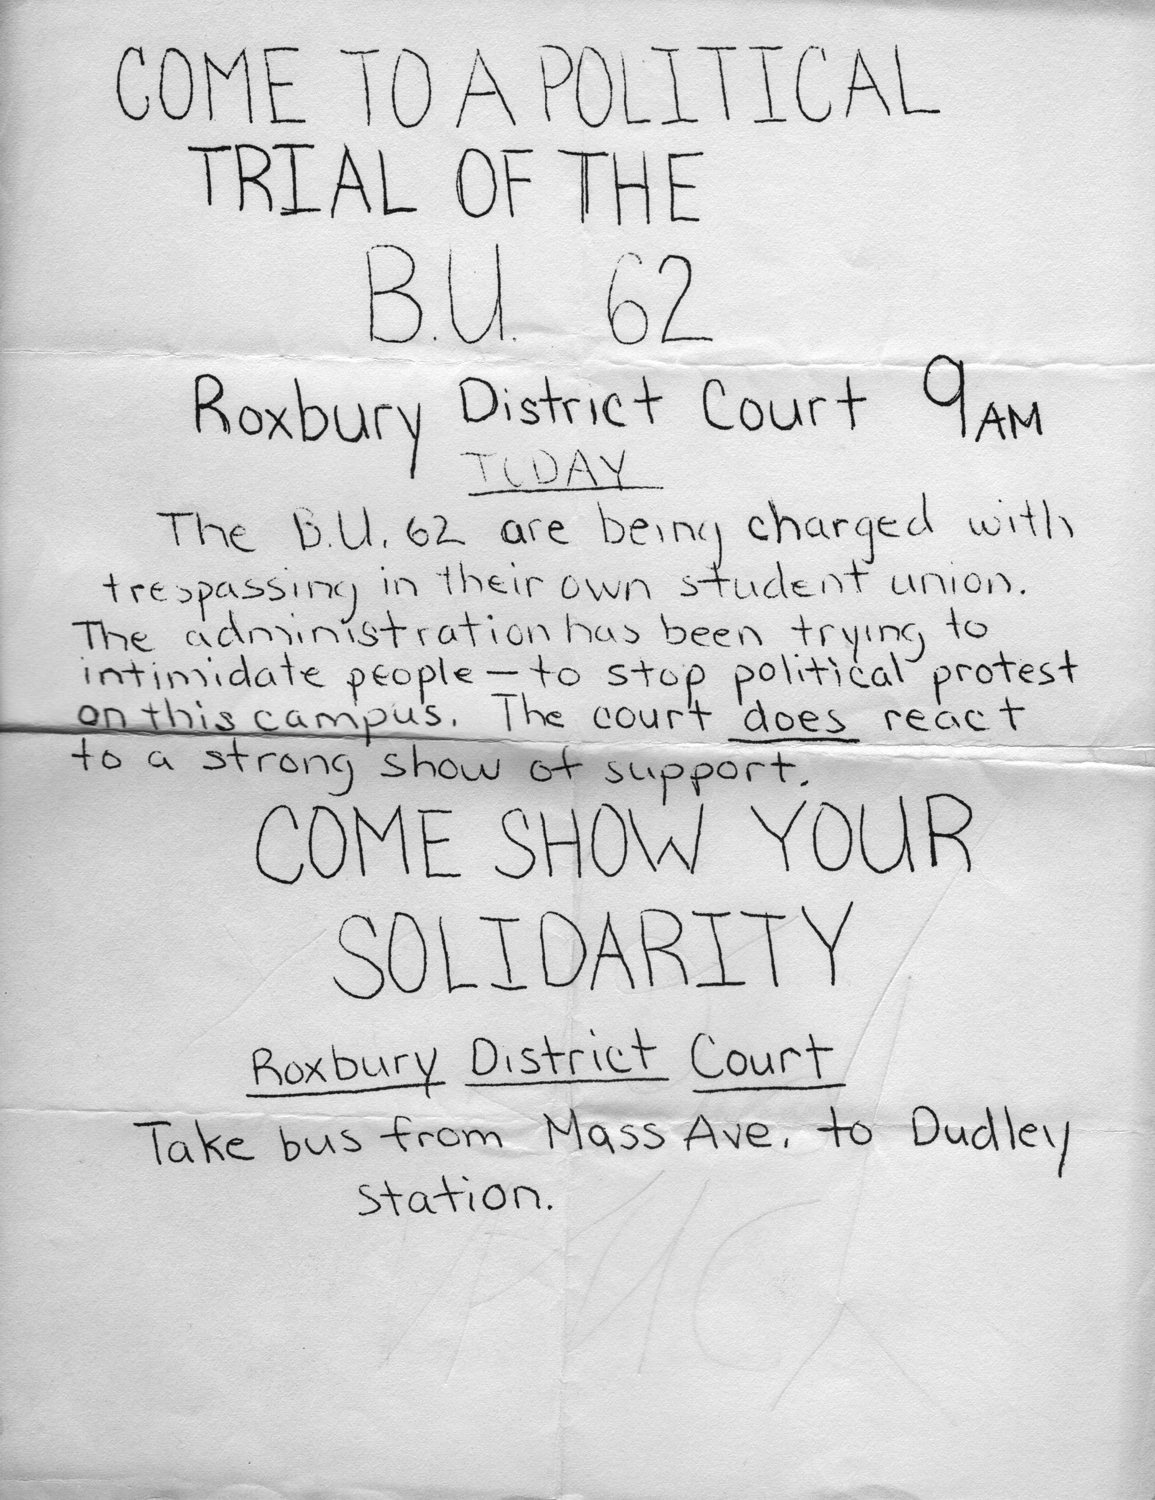 COME TO A POLITICAL
TRIAL OF THE
B.U. 62
Roxbury District Court 9AM
TODAY
The B.U. 62 are being charged with
trespassing in their own student union.
The administration has been trying to
intimidate people — to stop political protest
on this campus. The court does react
to a strong show of support.
COME SHOW YOUR
SOLIDARITY
Roxbury District Court
Take bus from Mass Ave. to Dudley
station.